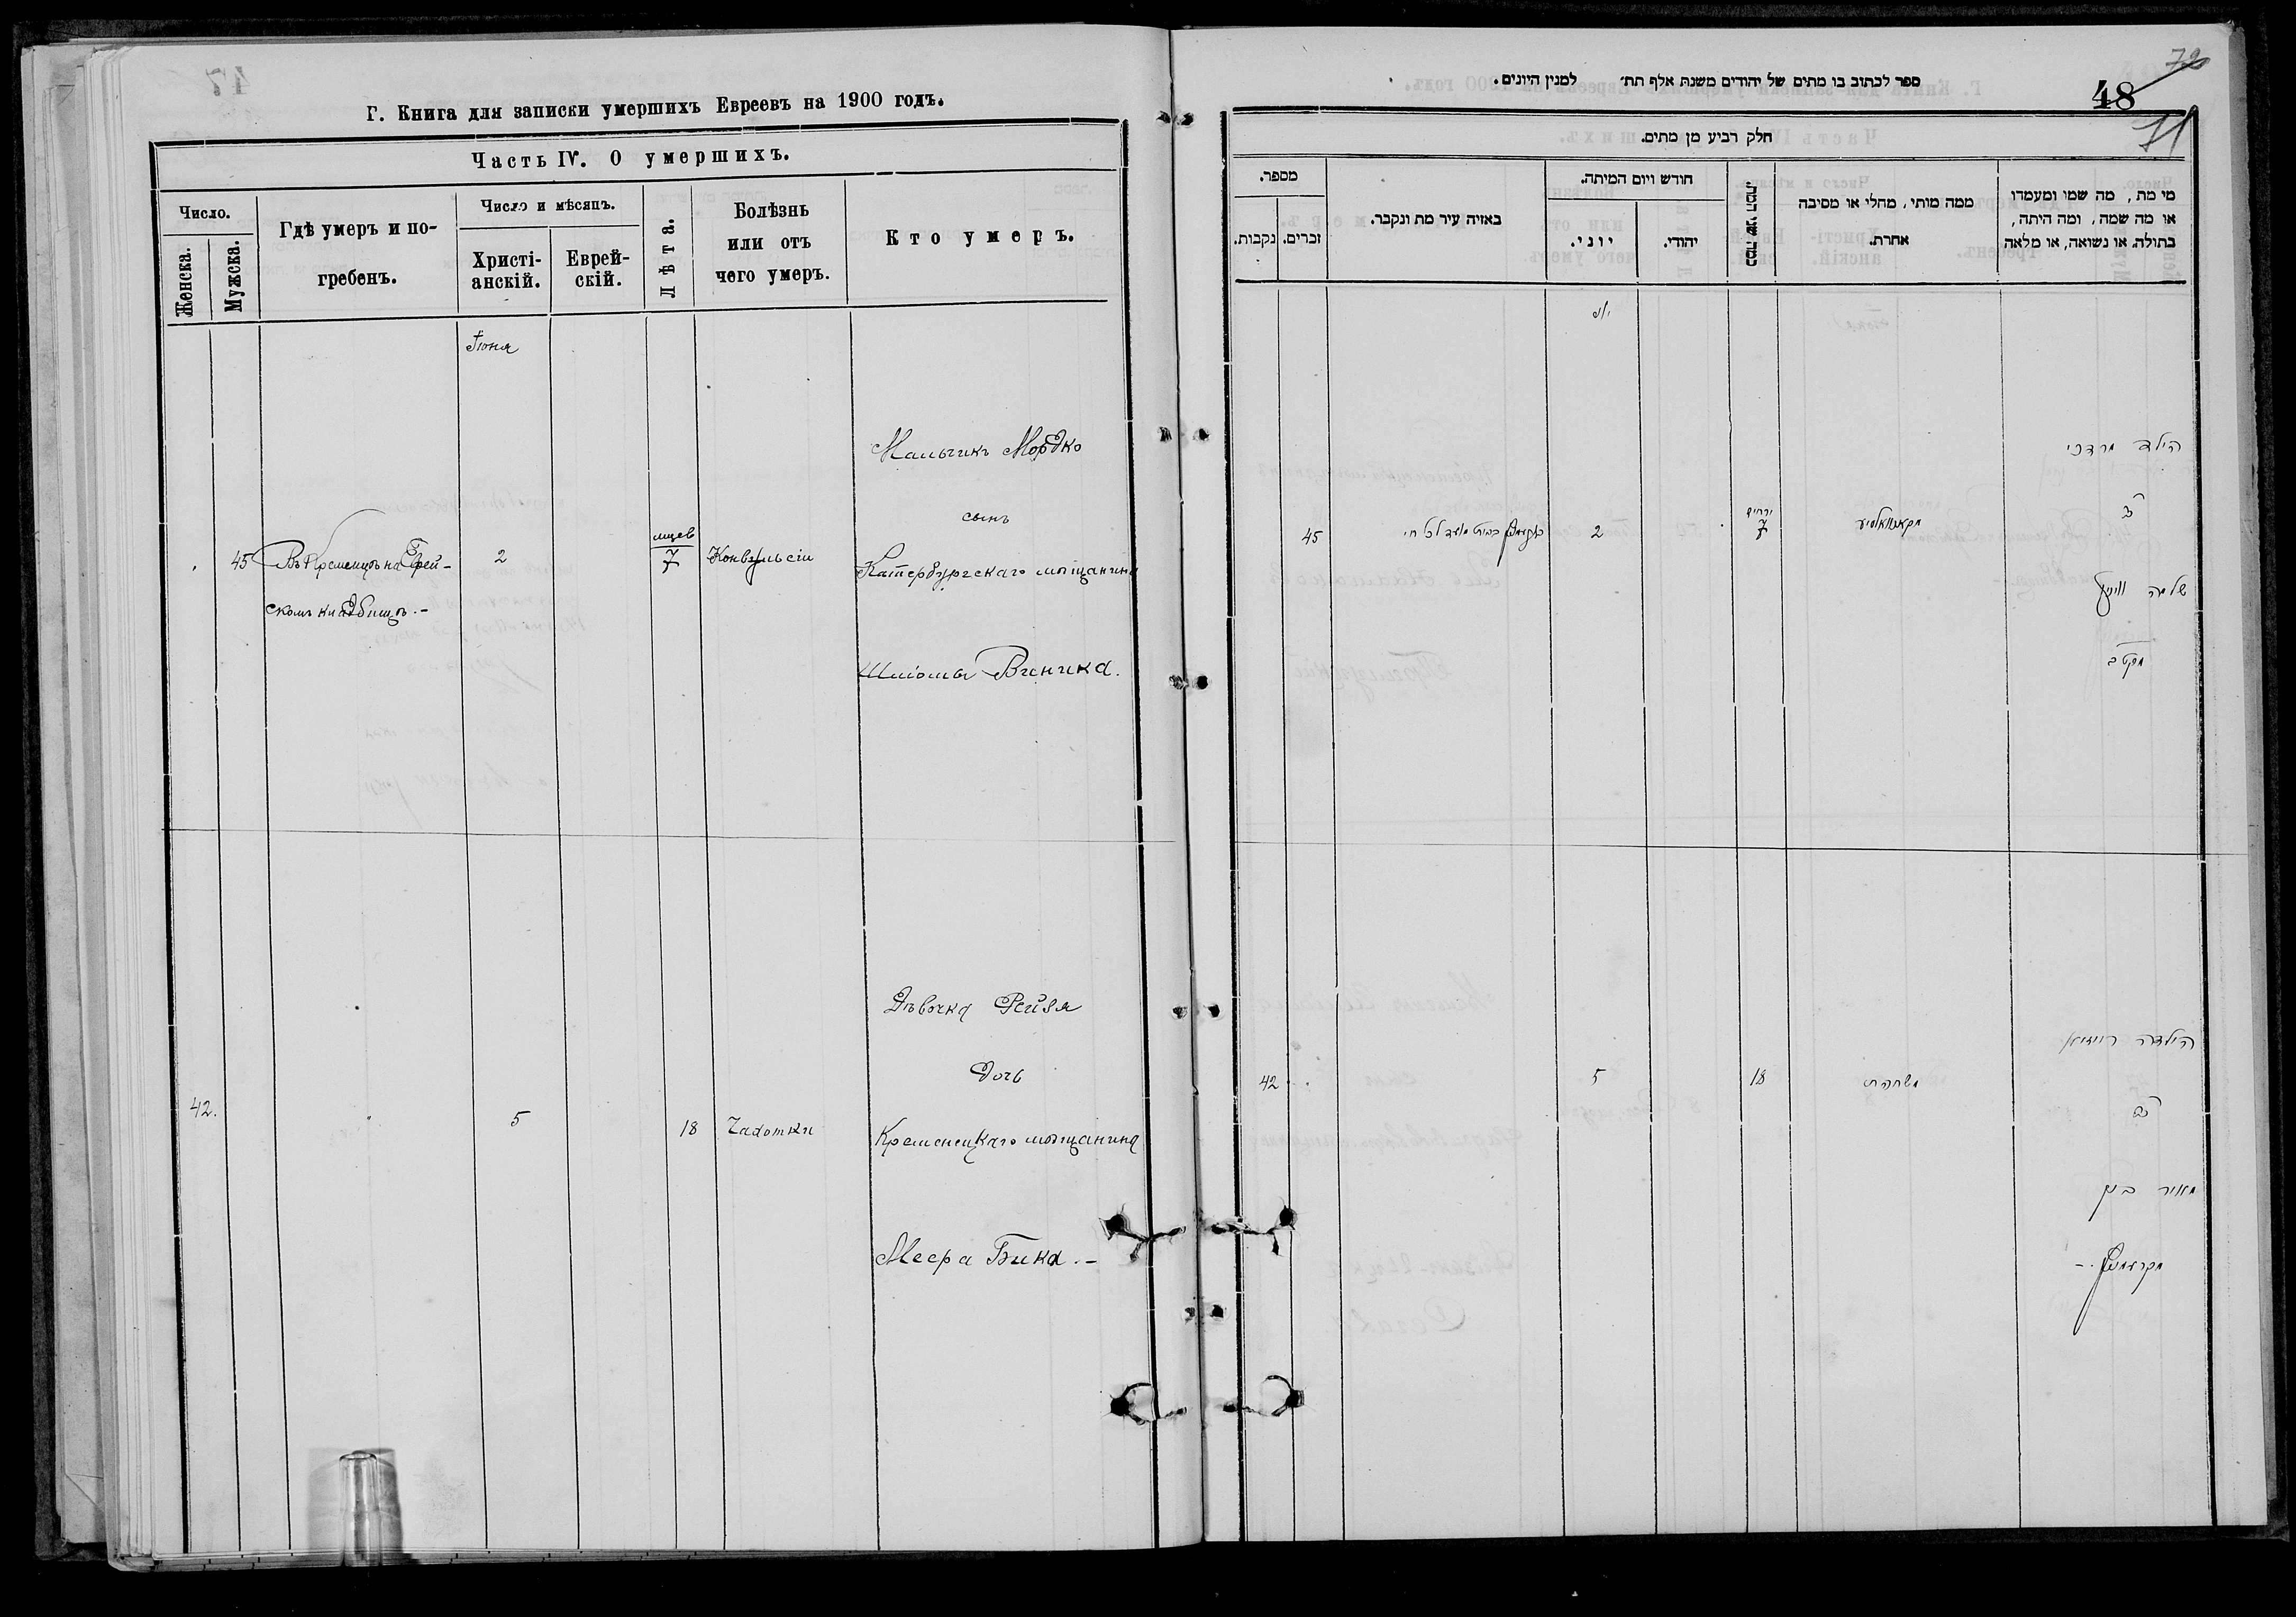 Г. Книга для записки умершихъ Евреевъ на 1900 годъ.
Часть IV. О умершихъ.
Число.
Женска.
Мужска.
Гдѣ умеръ и по-
гребенъ.
Число и мѣсяцъ.
Христі-
анскій.
Еврей-
скій.
Лѣта.
Болѣзнь
или отъ
чего умеръ.
Кто умеръ.
Іюня
45
Въ Кременцѣ на Еврей-
скомъ кладбищѣ.-
2
мцев
7
Конвульсіи
Мальчикъ Мордко
сынъ
Катербургскаго мѣщанина
Шліомы Виника.
42.
"
5
18
Чахотки
Дѣвочка Рейзя
дочь
Кременецкаго мѣщанина
Меера Бика.-
ספר לכתוב בו מתים של יהודים משנת אלף תת׳ למנין היונים.
72
48
71
חלק רביע מן מתים.
מספר.
נקבות.
זכרים.
באיזה עיר מת ונקבר.
חודש ויום המיתה.
יוני.
יהודי.
כמה שני המת.
ממה מותי, מחלי או מסיבה
אחרת.
מי מת, מה שמו ומעמדו
או מה שמה, ומה היתה,
בתולה, או נשואה, או מלאה
45
2
7
הילד מרדכי
ב
שלמה וויניק
42
5
18
הילדה רייזיא
ב
מאיר ביק